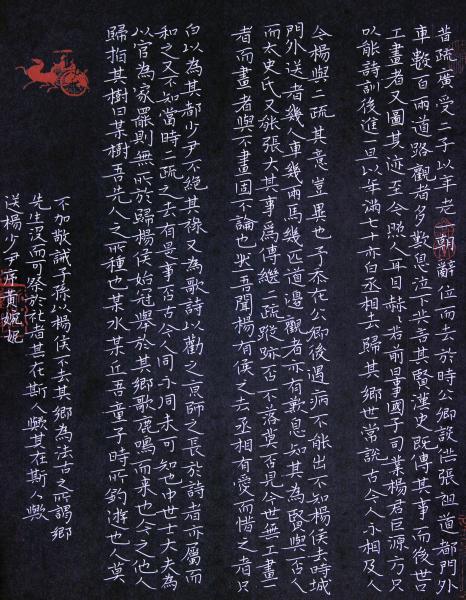 昔疏廣受二子以年老一朝辭位而去於時公卿設供張祖道都門外
車數百兩道路觀者多歎息泣下共言其賢漢史既傳其事而後世
工畫者又圖其迹至今照人耳目赫若前日事國子司業楊君巨源方只
以能詩訓後進一旦以年滿七十亦白丞相去歸其鄉世常說古今人不相及人
今楊與二疏其意豈異也予忝在公卿後遇病不能出不知楊侯去時城
門外送者幾人車幾兩馬幾匹道邊觀者亦有歎息知其為賢與否人
而太史氏又能張大其事為傳繼二疏蹤跡否不落莫否見今世無工畫
者而畫者與不畫固不論也然吾聞楊有侯之去丞相有愛而惜之者只
白以為其都少尹不絕其祿又為歌詩以勸之京師之長於詩者亦屬而
和之又不知當時二疏之去有是事否古今人同不同未可知也中世士大夫為
以官為家罷則無所於歸楊侯始冠舉於其鄉歌鹿鳴而來也今之他人
歸指其樹曰某樹吾先人之所種也某水某丘吾童子時所釣遊也人莫
不加敬誡子孫以楊侯不去其鄉為法古之所謂鄉
先生沒而可祭於社者其在斯人歟其在斯人歟
送楊少尹序黃婉妮